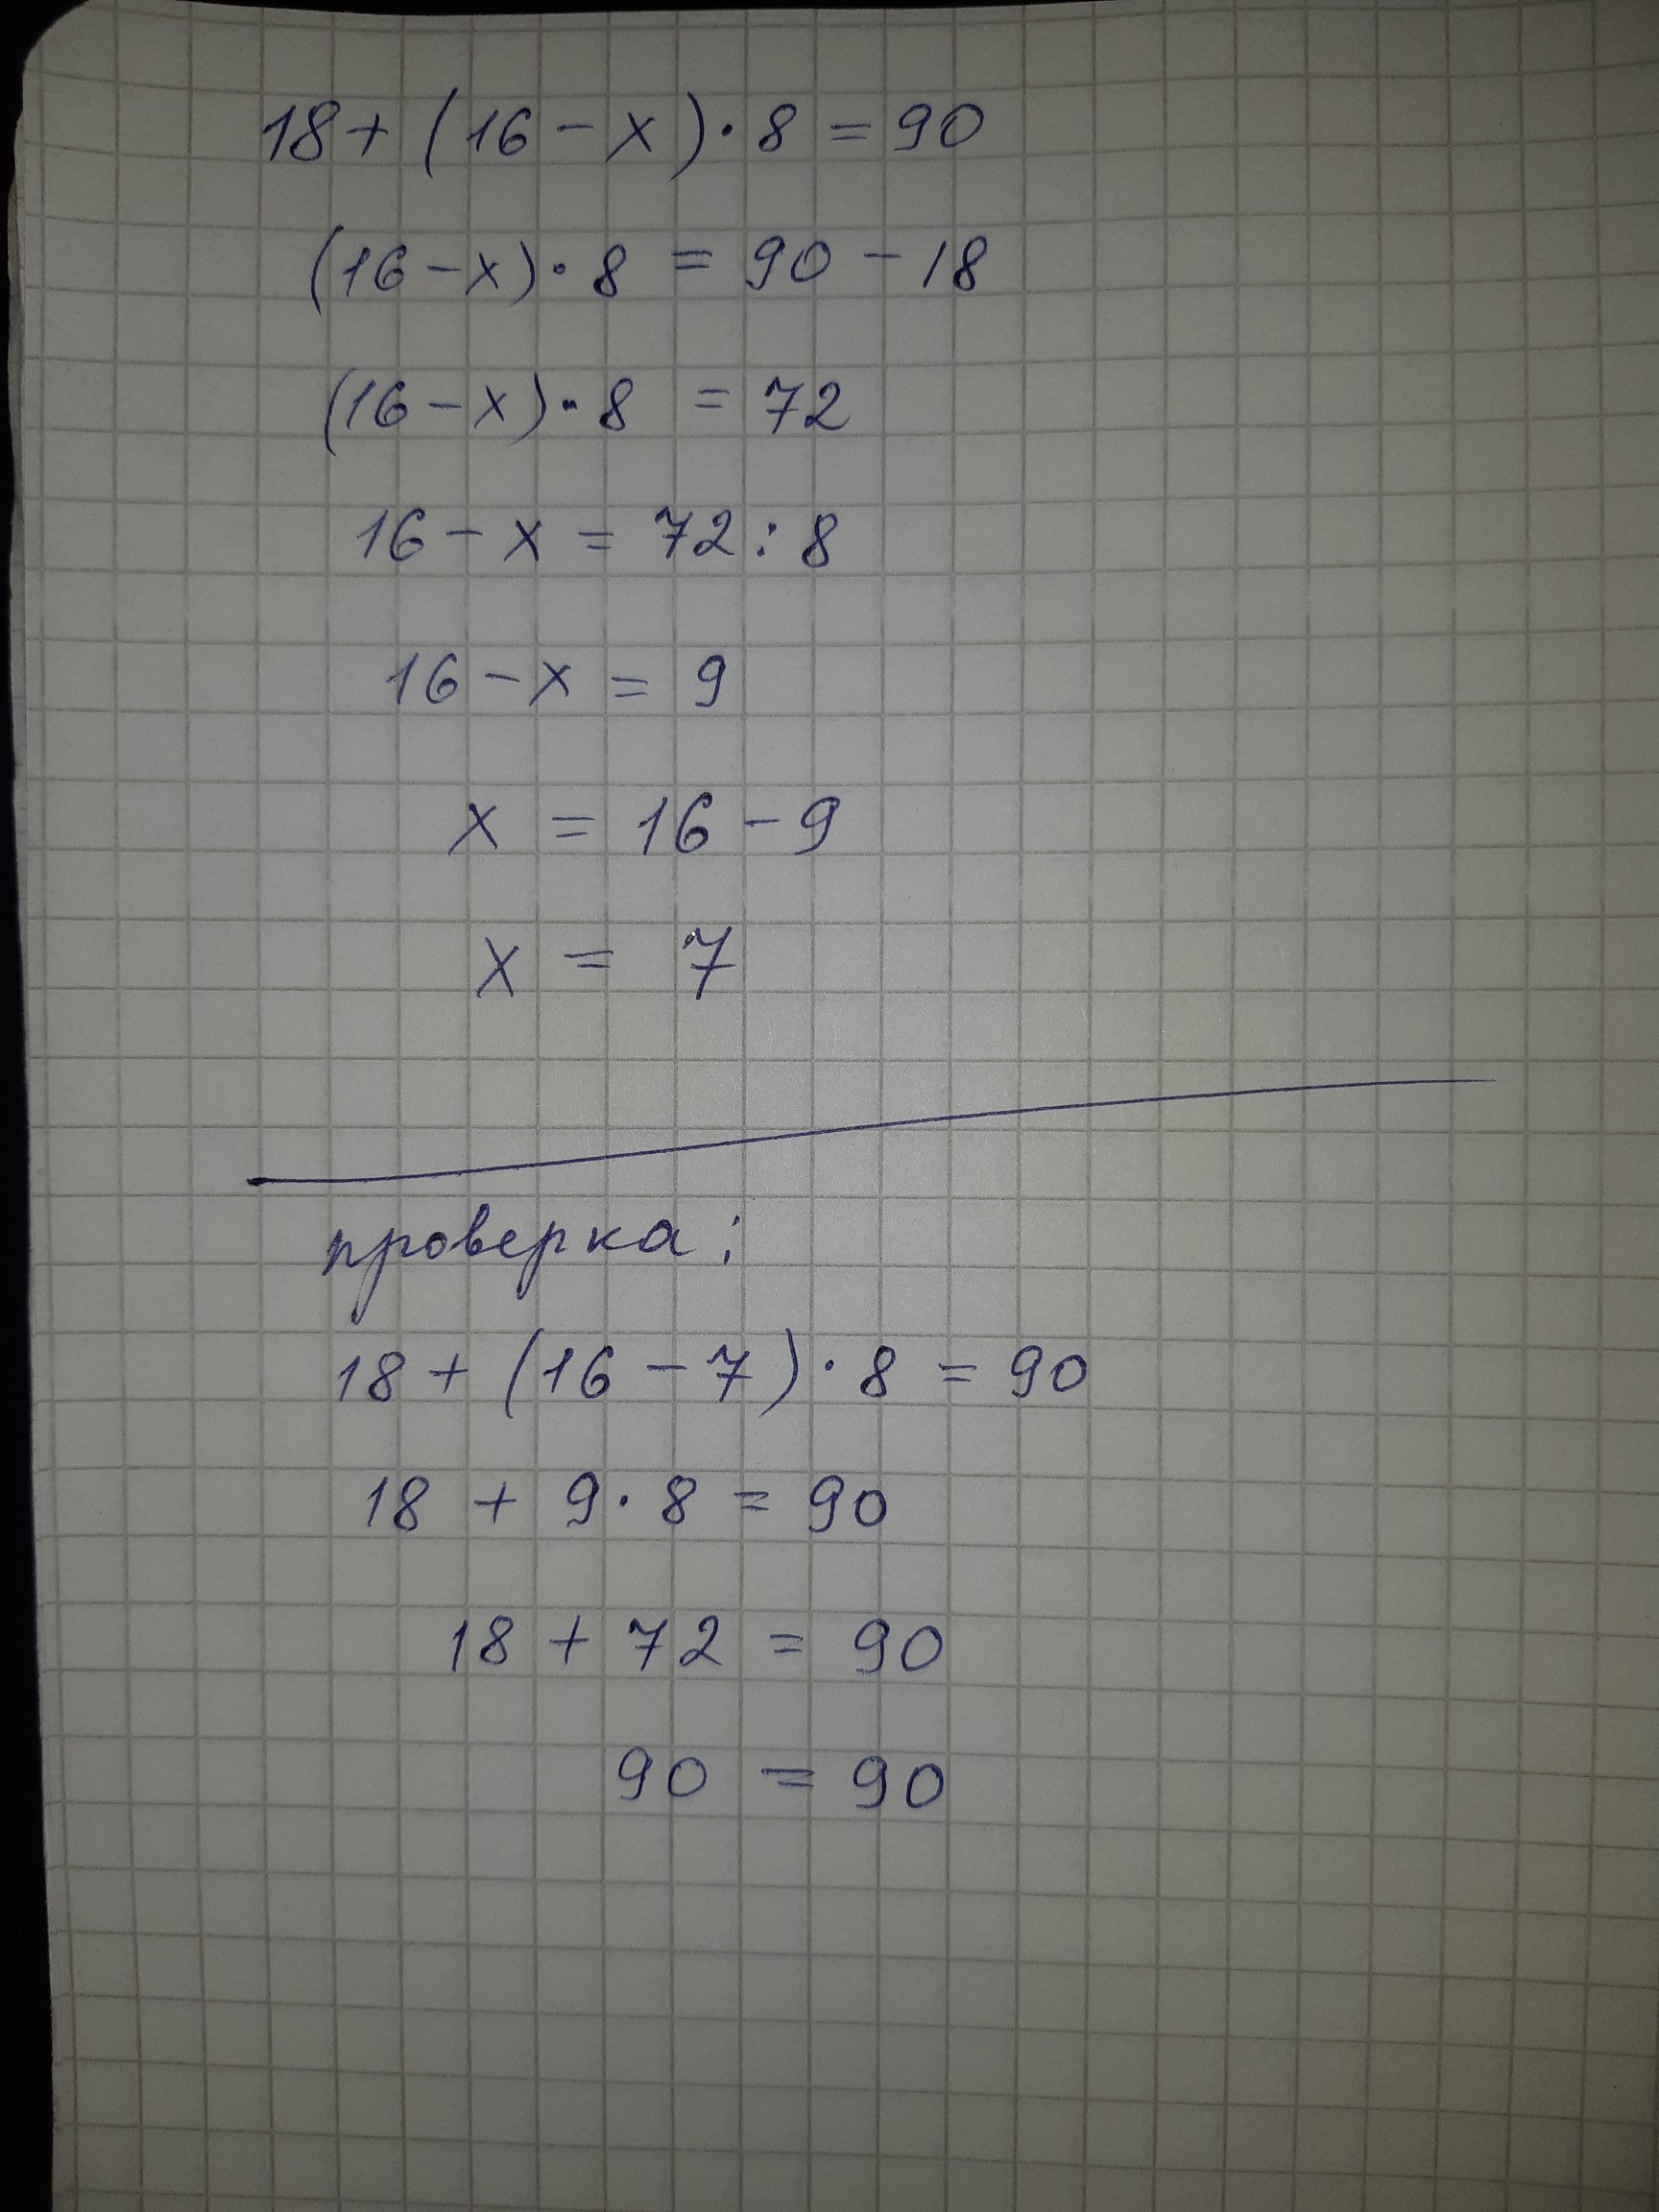 18 + (16 - x) · 8 = 90
(16 - x) · 8 = 90 - 18
(16 - x) · 8 = 72
16 - x = 72 : 8
16 - x = 9
x = 16 - 9
x = 7
проверка:
18 + (16 - 7) · 8 = 90
18 + 9 · 8 = 90
18 + 72 = 90
90 = 90